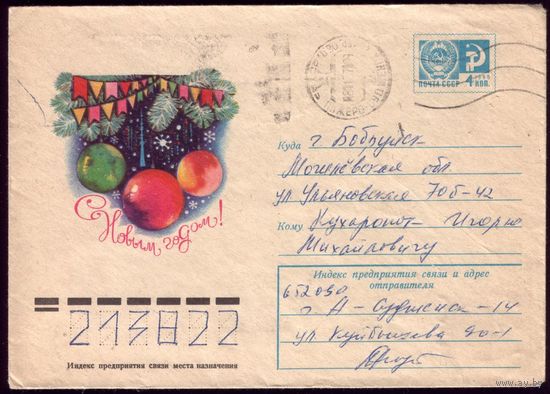 ПОЧТА СССР
4 КОП.
С Новым годом!
Куда г. Бобруйск
Могилёвская обл.
ул. Ульяновская 70б-42
Кому Кухаронок Игорю
Михайловичу
Индекс предприятия связи и адрес
отправителя
652090
г. А-Судженск-14
ул. Куйбышева
213822
Индекс предприятия связи места назначения
www.ay.by